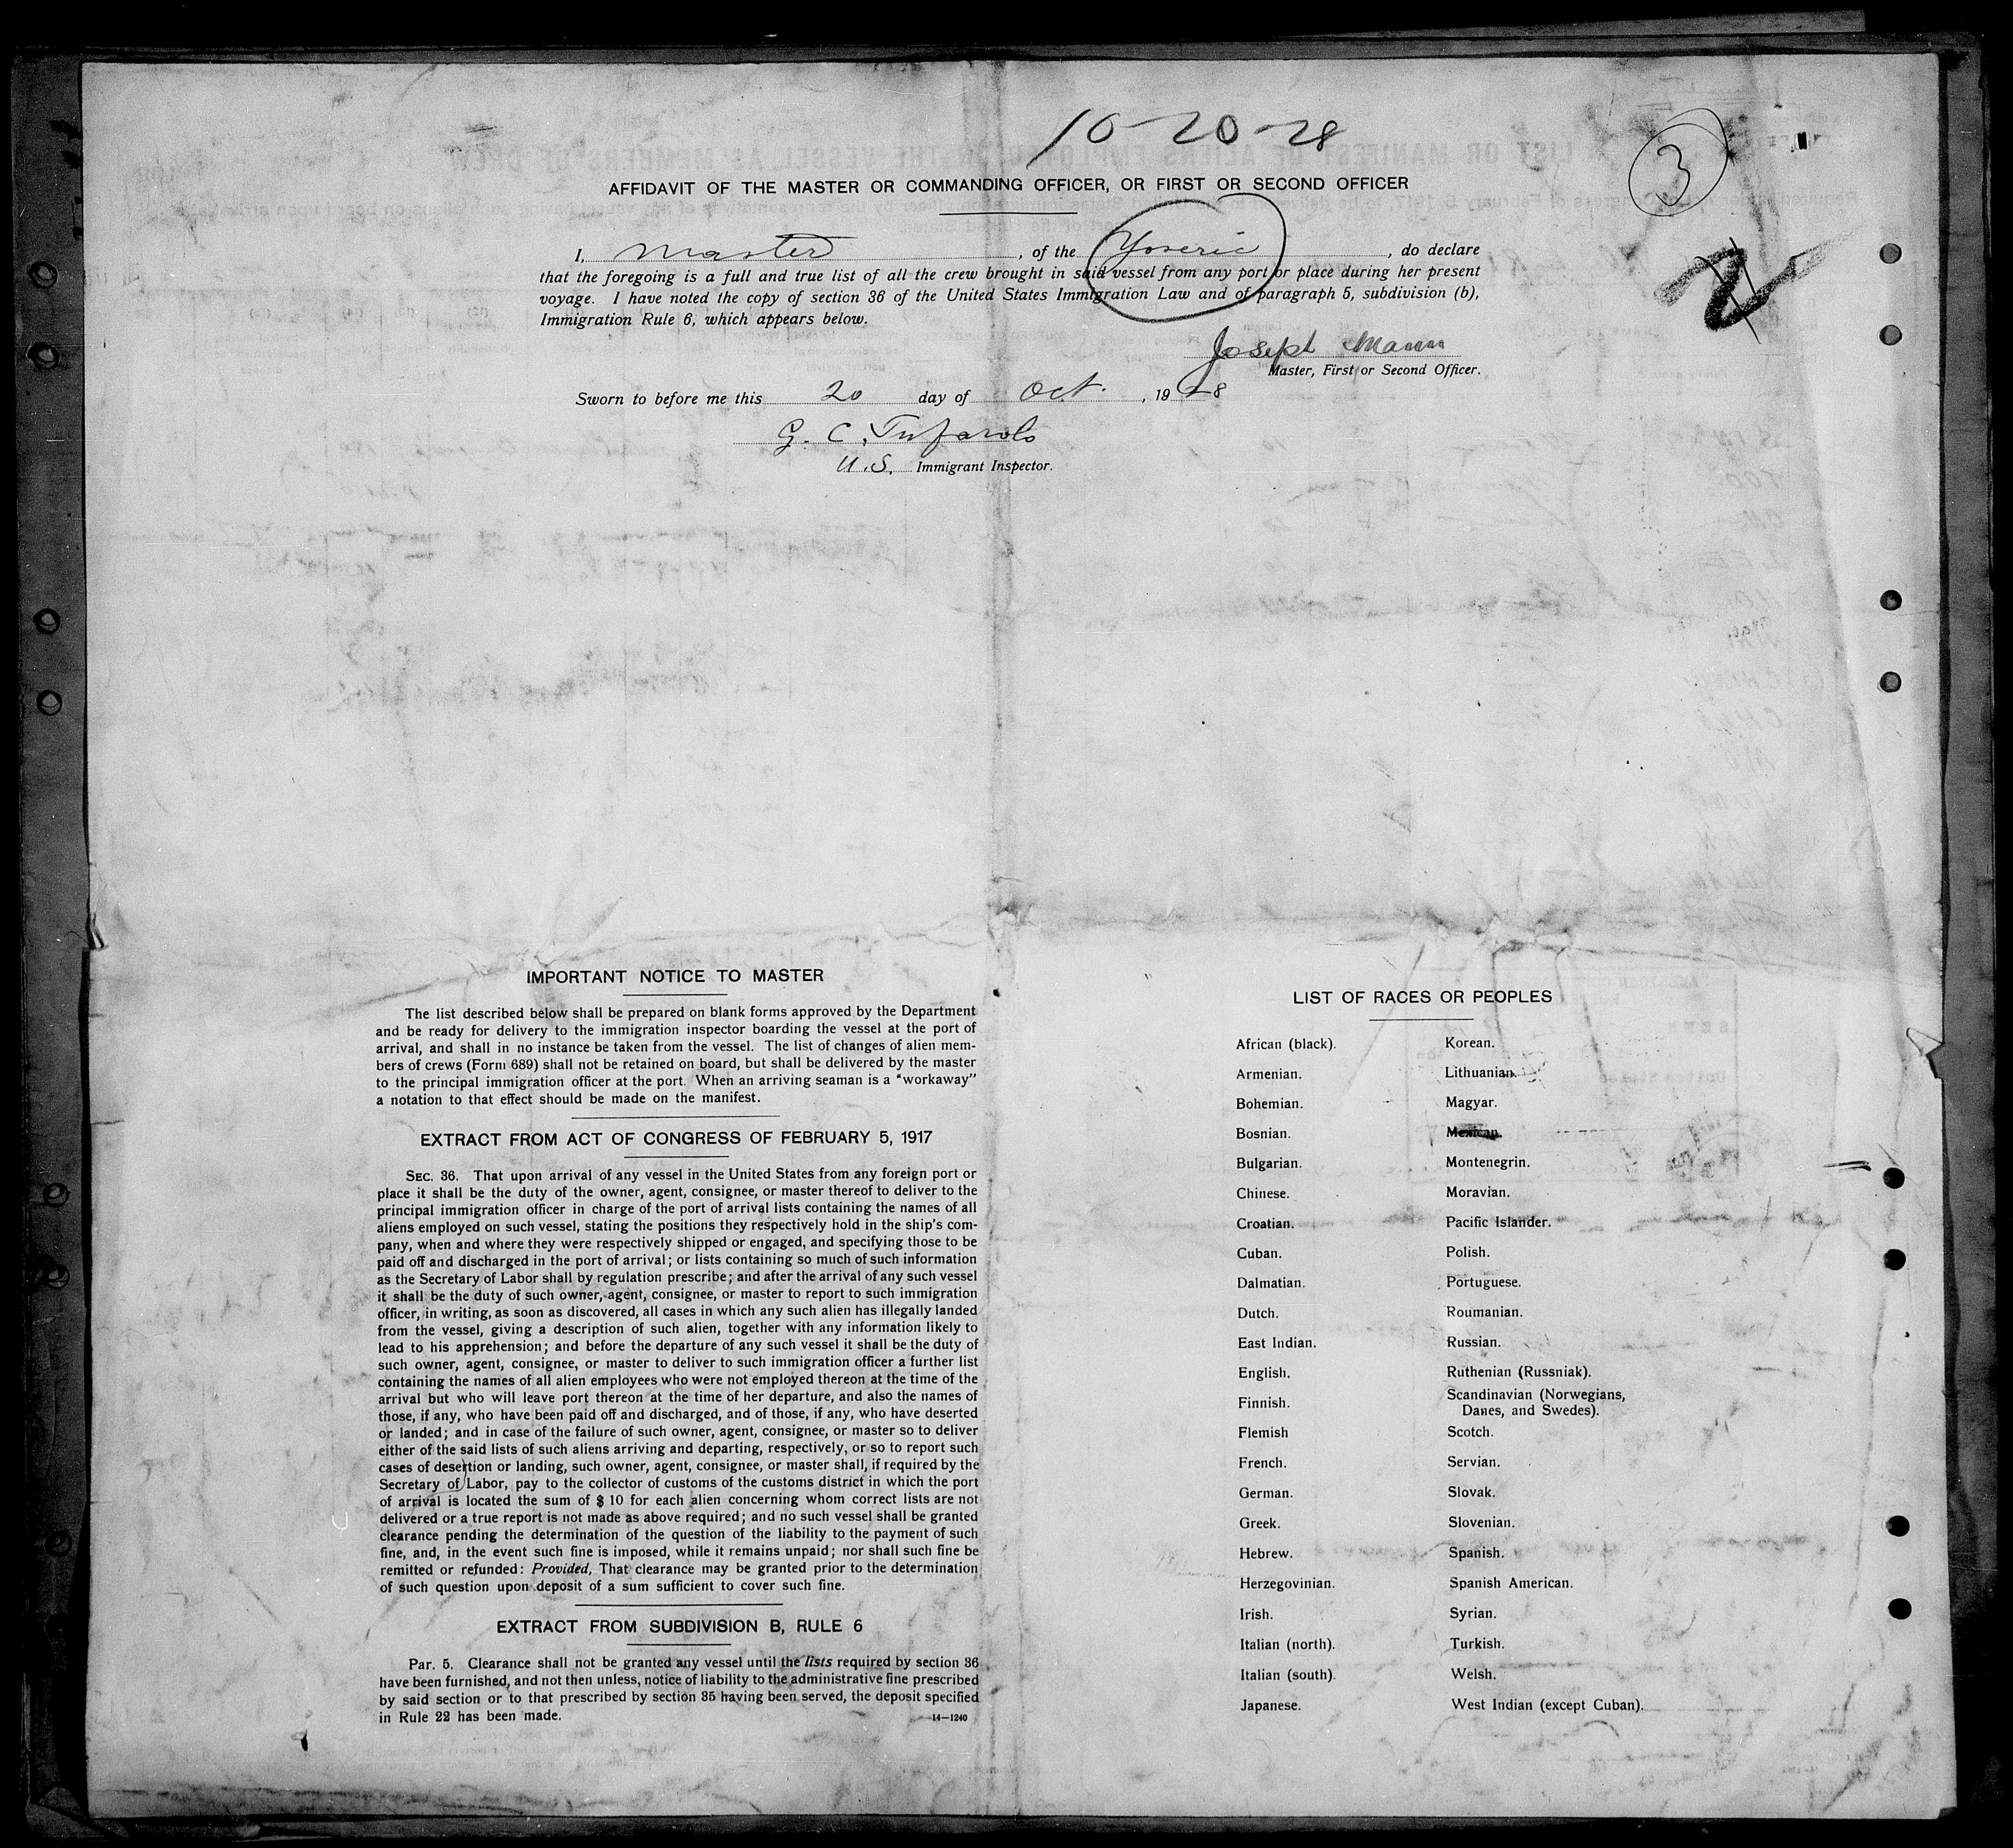 10-20-28
3
2
AFFIDAVIT OF THE MASTER OR COMMANDING OFFICER, OR FIRST OR SECOND OFFICER
I, Master, of the Yoseric, do declare
that the foregoing is a full and true list of all the crew brought in said vessel from any port or place during her present
voyage. I have noted the copy of section 36 of the United States Immigration Law and of paragraph 5, subdivision (b),
Immigration Rule 6, which appears below.
Joseph Mann
Master, First or Second Officer.
Sworn to before me this 20 day of Oct., 1928
G. C.
U.S. Immigrant Inspector.
IMPORTANT NOTICE TO MASTER
The list described below shall be prepared on blank forms approved by the Department
and be ready for delivery to the immigration inspector boarding the vessel at the port of
arrival, and shall in no instance be taken from the vessel. The list of changes of alien mem-
bers of crews (Form 689) shall not be retained on board, but shall be delivered by the master
to the principal immigration officer at the port. When an arriving seaman is a "workaway"
a notation to that effect should be made on the manifest.
EXTRACT FROM ACT OF CONGRESS OF FEBRUARY 5, 1917
SEC. 36. That upon arrival of any vessel in the United States from any foreign port or
place it shall be the duty of the owner, agent, consignee, or master thereof to deliver to the
principal immigration officer in charge of the port of arrival lists containing the names of all
aliens employed on such vessel, stating the positions they respectively hold in the ship's com-
pany, when and where they were respectively shipped or engaged, and specifying those to be
paid off and discharged in the port of arrival; or lists containing so much of such information
as the Secretary of Labor shall by regulation prescribe; and after the arrival of any such vessel
it shall be the duty of such owner, agent, consignee, or master to report to such immigration
officer, in writing, as soon as discovered, all cases in which any such alien has illegally landed
from the vessel, giving a description of such alien, together with any information likely to
lead to his apprehension; and before the departure of any such vessel it shall be the duty of
such owner, agent, consignee, or master to deliver to such immigration officer a further list
containing the names of all alien employees who were not employed thereon at the time of the
arrival but who will leave port thereon at the time of her departure, and also the names of
those, if any, who have been paid off and discharged, and of those, if any, who have deserted
or landed; and in case of the failure of such owner, agent, consignee, or master so to deliver
either of the said lists of such aliens arriving and departing, respectively, or so to report such
cases of desertion or landing, such owner, agent, consignee, or master shall, if required by the
Secretary of Labor, pay to the collector of customs of the customs district in which the port
of arrival is located the sum of $10 for each alien concerning whom correct lists are not
delivered or a true report is not made as above required; and no such vessel shall be granted
clearance pending the determination of the question of the liability to the payment of such
fine, and, in the event such fine is imposed, while it remains unpaid; nor shall such fine be
remitted or refunded: Provided, That clearance may be granted prior to the determination
of such question upon deposit of a sum sufficient to cover such fine.
EXTRACT FROM SUBDIVISION B, RULE 6
Par. 5. Clearance shall not be granted any vessel until the lists required by section 36
have been furnished, and not then unless, notice of liability to the administrative fine prescribed
by said section or to that prescribed by section 35 having been served, the deposit specified
in Rule 22 has been made.
14—1240
LIST OF RACES OR PEOPLES
African (black). Korean.
Armenian. Lithuanian.
Bohemian. Magyar.
Bosnian. Mexican.
Bulgarian. Montenegrin.
Chinese. Moravian.
Croatian. Pacific Islander.
Cuban. Polish.
Dalmatian. Portuguese.
Dutch. Roumanian.
East Indian. Russian.
English. Ruthenian (Russniak).
Finnish. Scandinavian (Norwegians,
Danes, and Swedes).
Flemish Scotch.
French. Servian.
German. Slovak.
Greek. Slovenian.
Hebrew. Spanish.
Herzegovinian. Spanish American.
Irish. Syrian.
Italian (north). Turkish.
Italian (south). Welsh.
Japanese. West Indian (except Cuban).